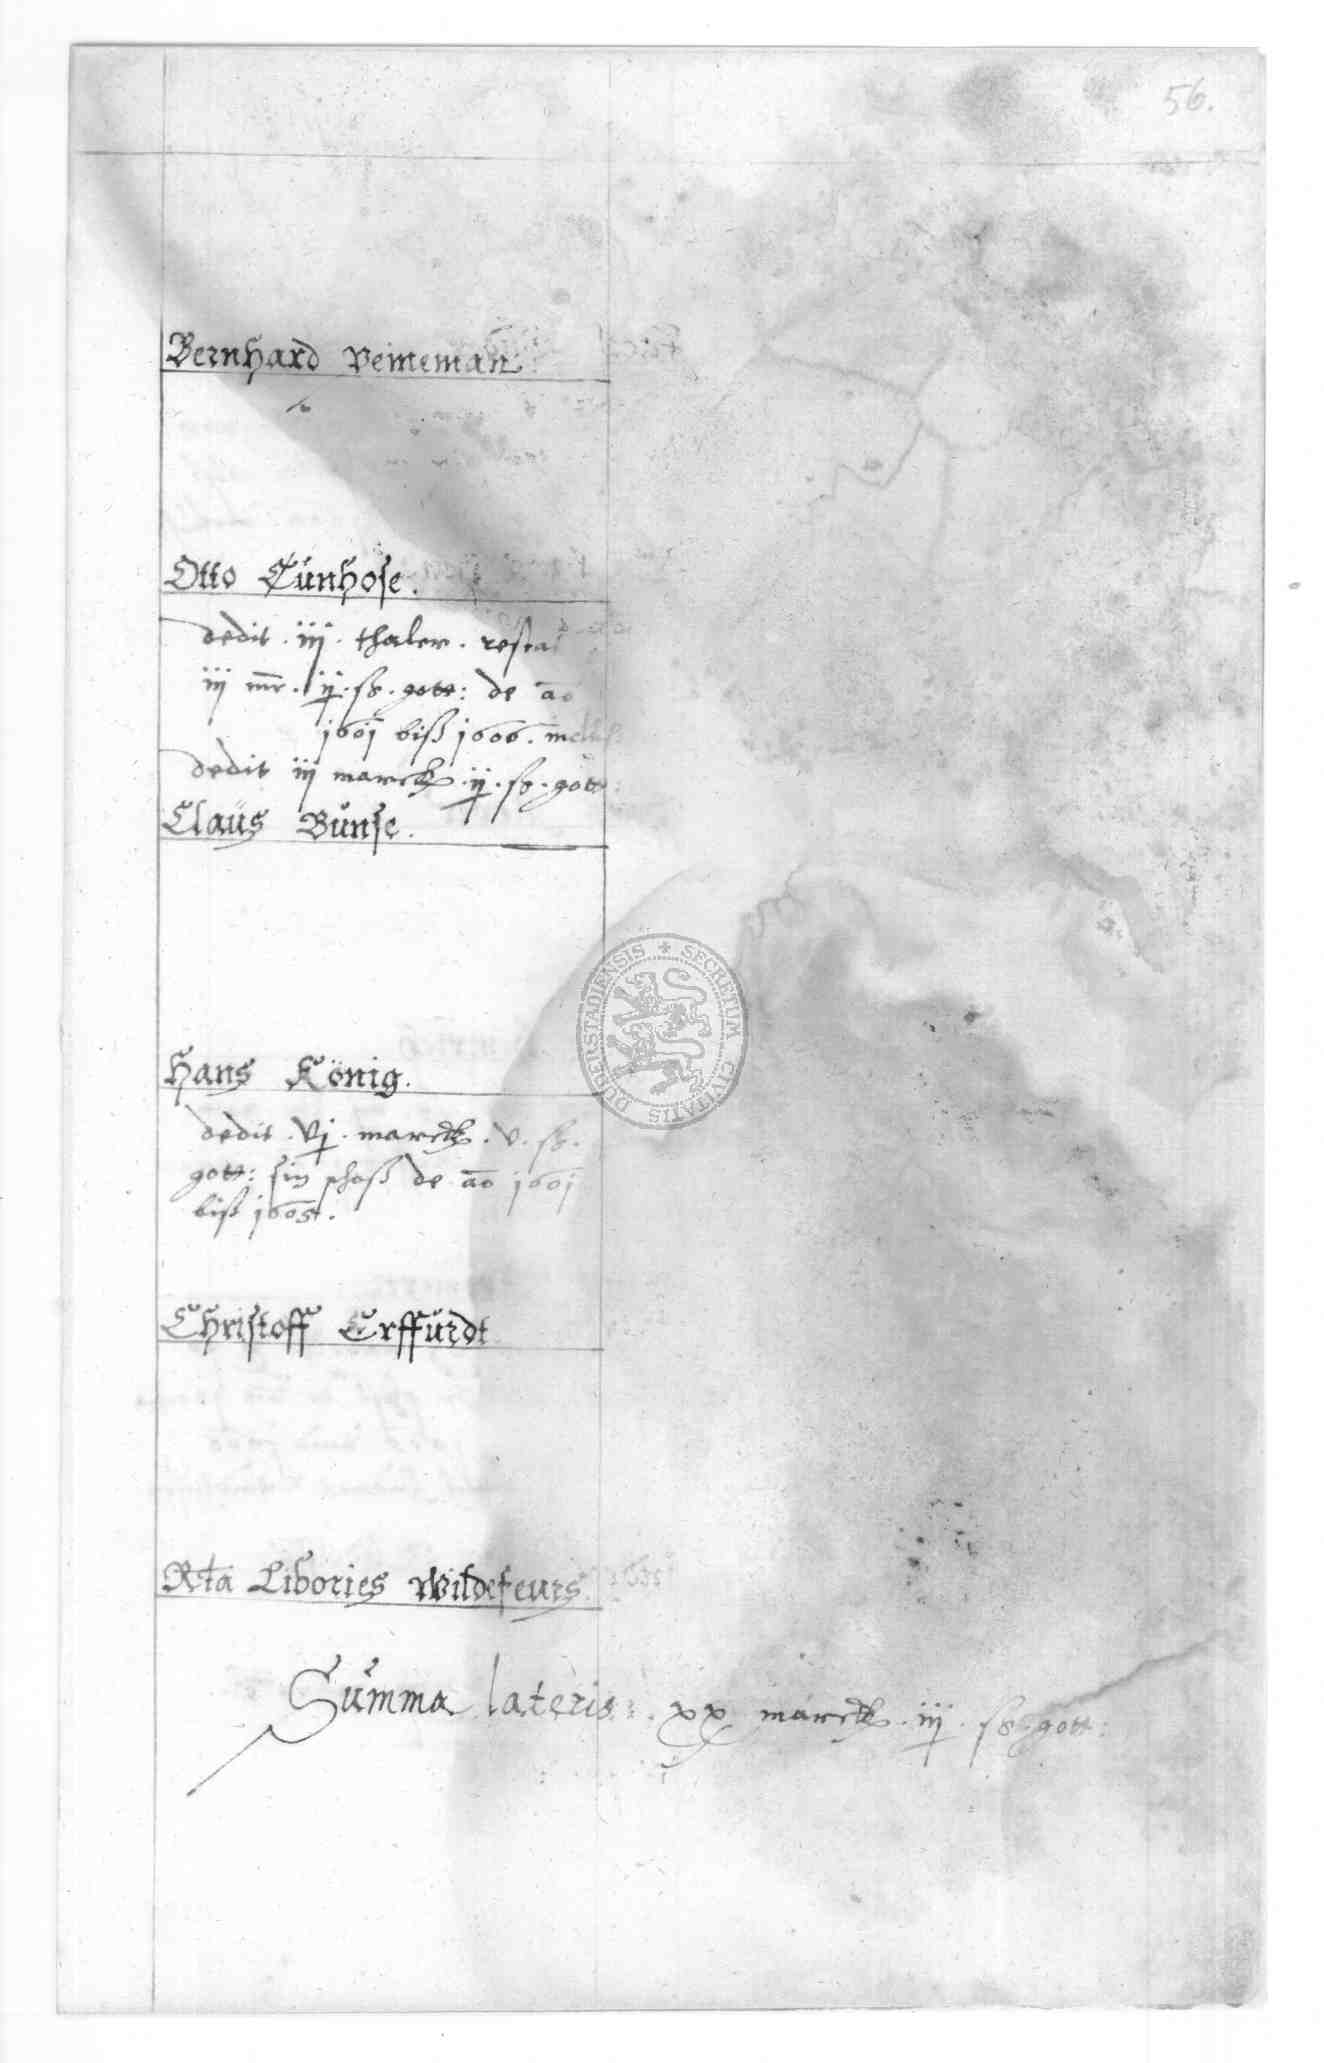 56.
Bernhard Veineman
Otto Cünhose.
dedit . iij . thaler . restat
iij mr . ij . ß . gott: de ao
1601 biß 1606 . inclus:
dedit iij marck . ij . ß . gott:
Claüs Bünse.
SECRETUM CIVITATIS DUDERSTADIENSIS
Hans König.
dedit . vj . marck . v . ß .
gott: sin schoß de ao 1601
biß 1605 .
Christoff Erffürdt
Rta Libories Wildefeurs
Summa lateris: . xx marck . iij . ß . gott: